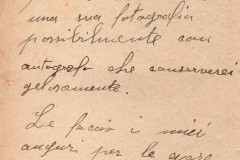 una sua fotografia
possibilmente con
autografo che conserverei
gelosamente.
Le faccio i miei
auguri per le gare